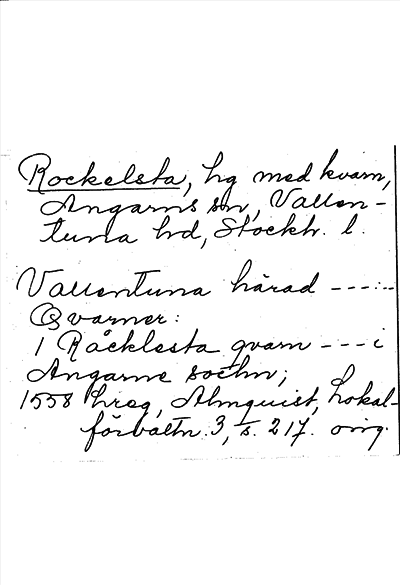 Rockelsta, hg med kvarn,
Angarns sn, Vallen-
tuna hd, Stockh. l.
Vallentuna härad ---:--
Qvarner:
1 Råcklesta qvarn --- i
Angarne sochn;
1558 hreg, Almquist, Lokal-
förvaltn. 3, s. 217. orig.